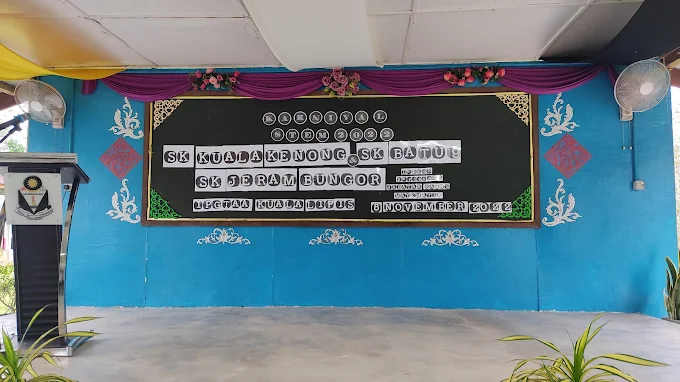 KARNIVAL
STEM 2022
SK KUALA KENONG & SK BATU 9
SK JERAM BUNGOR
IPGTAA KUALA LIPIS
6 NOVEMBER 2022